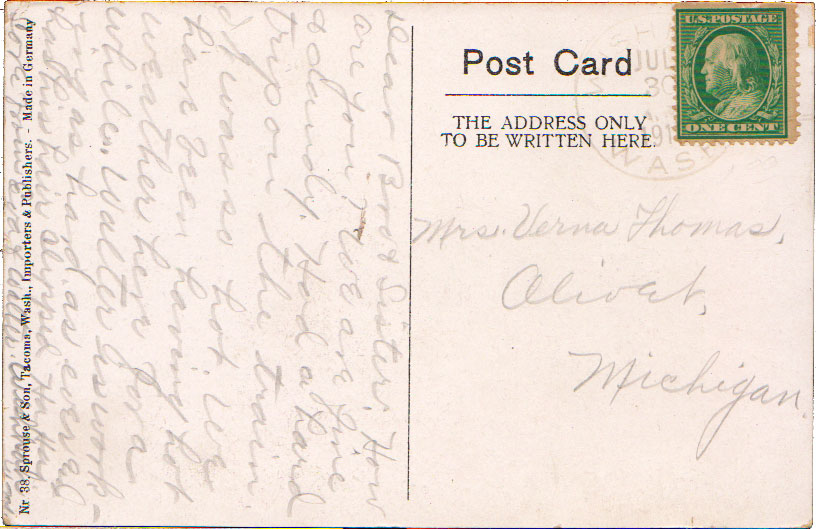 Dear Bro & Sister: How
are you? We are fine
& dandy. Had a hard
trip on the train
it was so hot. We
have been having hot
weather here for a
while. Walter is work-
ing as hard as ever
his hair clipped
Post Card
THE ADDRESS ONLY
TO BE WRITTEN HERE.
U.S. POSTAGE
ONE CENT
JUL
30
WASH
Mrs. Verna Thomas,
Olivet,
Michigan.
Nr 38, Sprouse & Son, Tacoma, Wash., Importers & Publishers. - Made in Germany